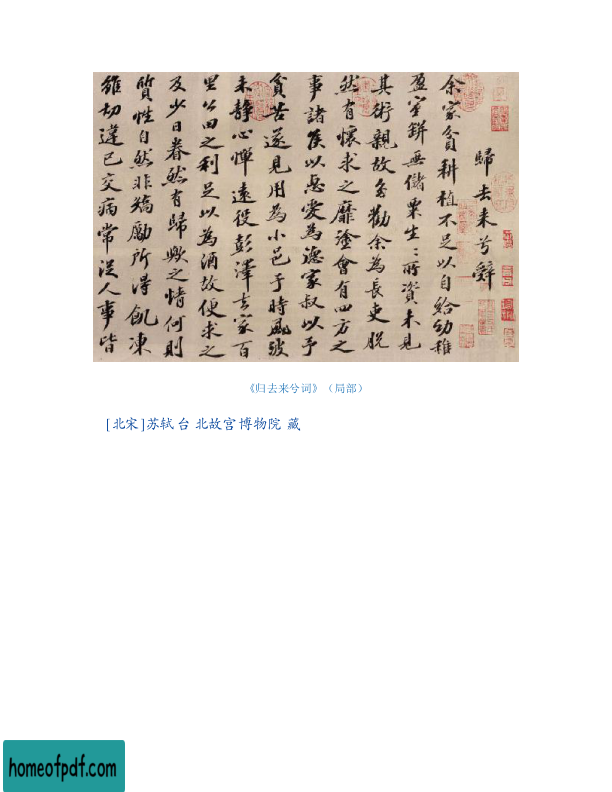 歸去来兮辭
余家貧耕植不足以自給幼稚
盈室缾無儲粟生:所資未見
其術親故多勸余為長吏脱
然有懷求之靡塗會有四方之
事諸侯以惠愛為德家叔以予
貧苦遂見用為小邑于時風波
未静心憚遠役彭澤去家百
里公田之利足以為酒故便求之
及少日眷然有歸歟之情何則
質性自然非矯勵所得飢凍
雖切違己交病常從人事皆
《归去来兮词》（局部）
[北宋]苏轼 台北故宫博物院 藏
homeofpdf.com